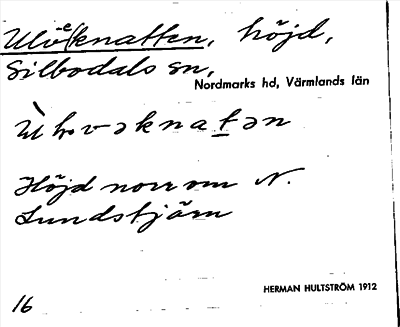 höjd,
Silbodals sn,
Nordmarks hd, Värmlands län
Höjd norr om N.
Lundstjärn
HERMAN HULTSTRÖM 1912
16